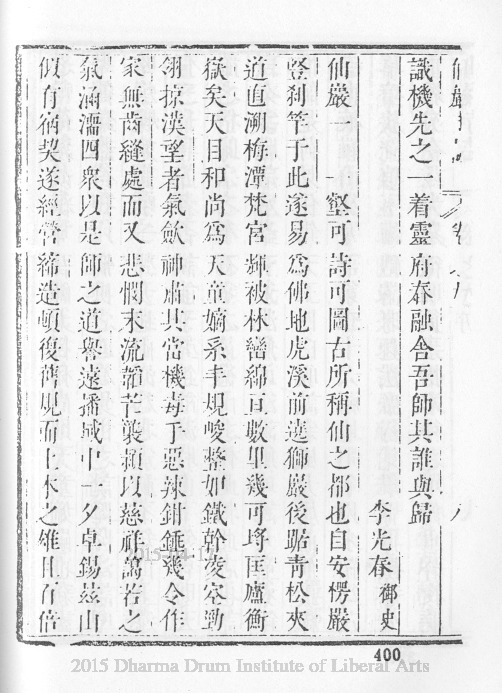 仙巖
識機先之一着靈府春融舍吾師其誰與歸
李光春 御史
仙巖一壑可詩可圖古所稱仙之都也自安楞嚴
竪刹竿于此遂易為佛地虎溪前遶獅巖後踞青松夾
道直溯梅潭梵宮輝被林巒綿亘數里幾可埒匡廬衡
嶽矣天目和尚為天童嫡系丰規峻整如鐵幹凌空勁
翎掠漢望者氣歛神肅其當機毒手惡辣鉗錘幾令作
家無齒縫處而又悲憫末流韜芒襲纇以慈祥藹若之
氣涵濡四衆以是師之道譽遠播域中一夕卓錫茲山
似有宿契遂經營締造頓復舊規而土木之雄且有倍
400
2015 Dharma Drum Institute of Liberal Arts